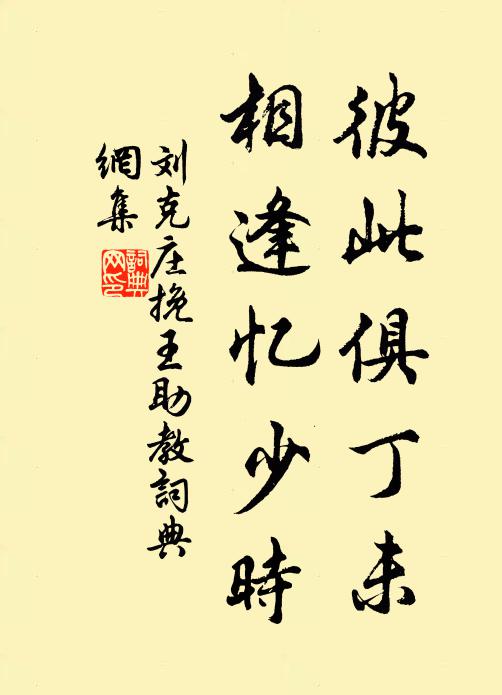 彼此俱丁未
相逢忆少时
刘克庄挽王助教詞典
網集
詞典网印